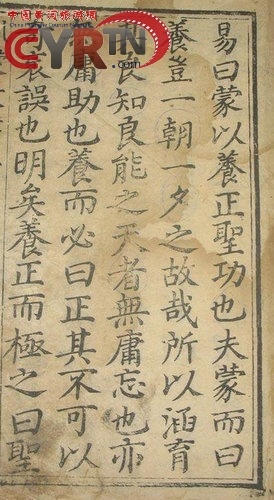 CYRTN
易曰蒙以養正聖功也夫蒙而曰
養豈一朝一夕之故哉所以涵育
良知良能之天者無庸忘也亦
庸助也養而必曰正其不可以
誤也明矣養正而極之曰聖